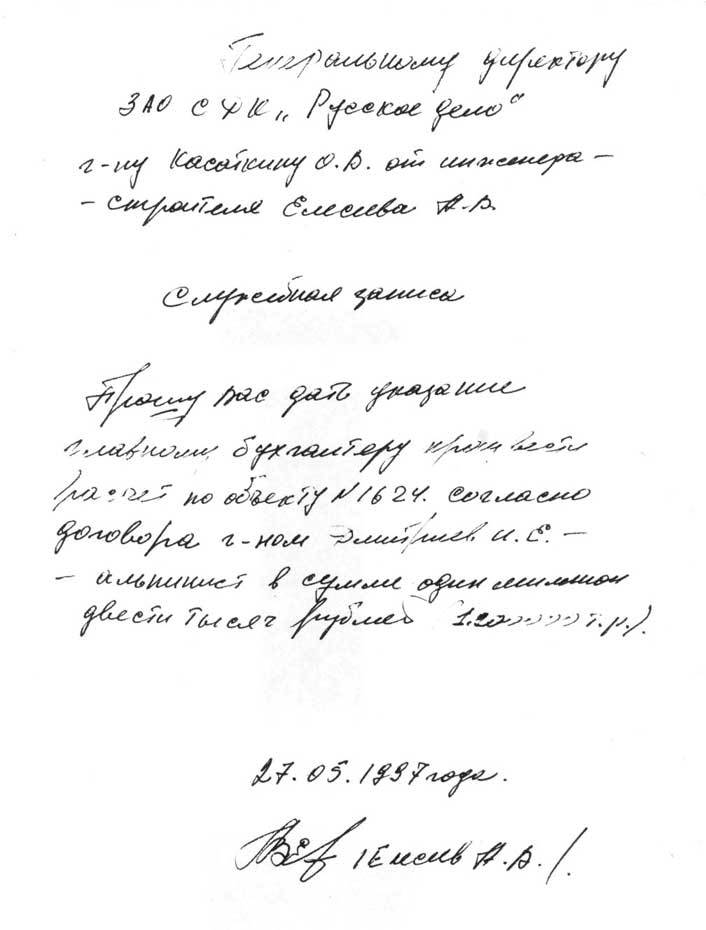 Генеральному директору
ЗАО СФК „Русское дело"
г-ну Касаткину О.В. от инженера –
– строителя Елесева А.В.
Служебная записа
Прошу вас дать указание
главному бухгалтеру произвести
расчет по объекту N1624. согласно
договора г-ном Дмитриев И.Е. –
– альпинист в сумме один миллион
двести тысяч рублей (1.200000 т.р.).
27.05.1997 года.
/Елесев А.В./.